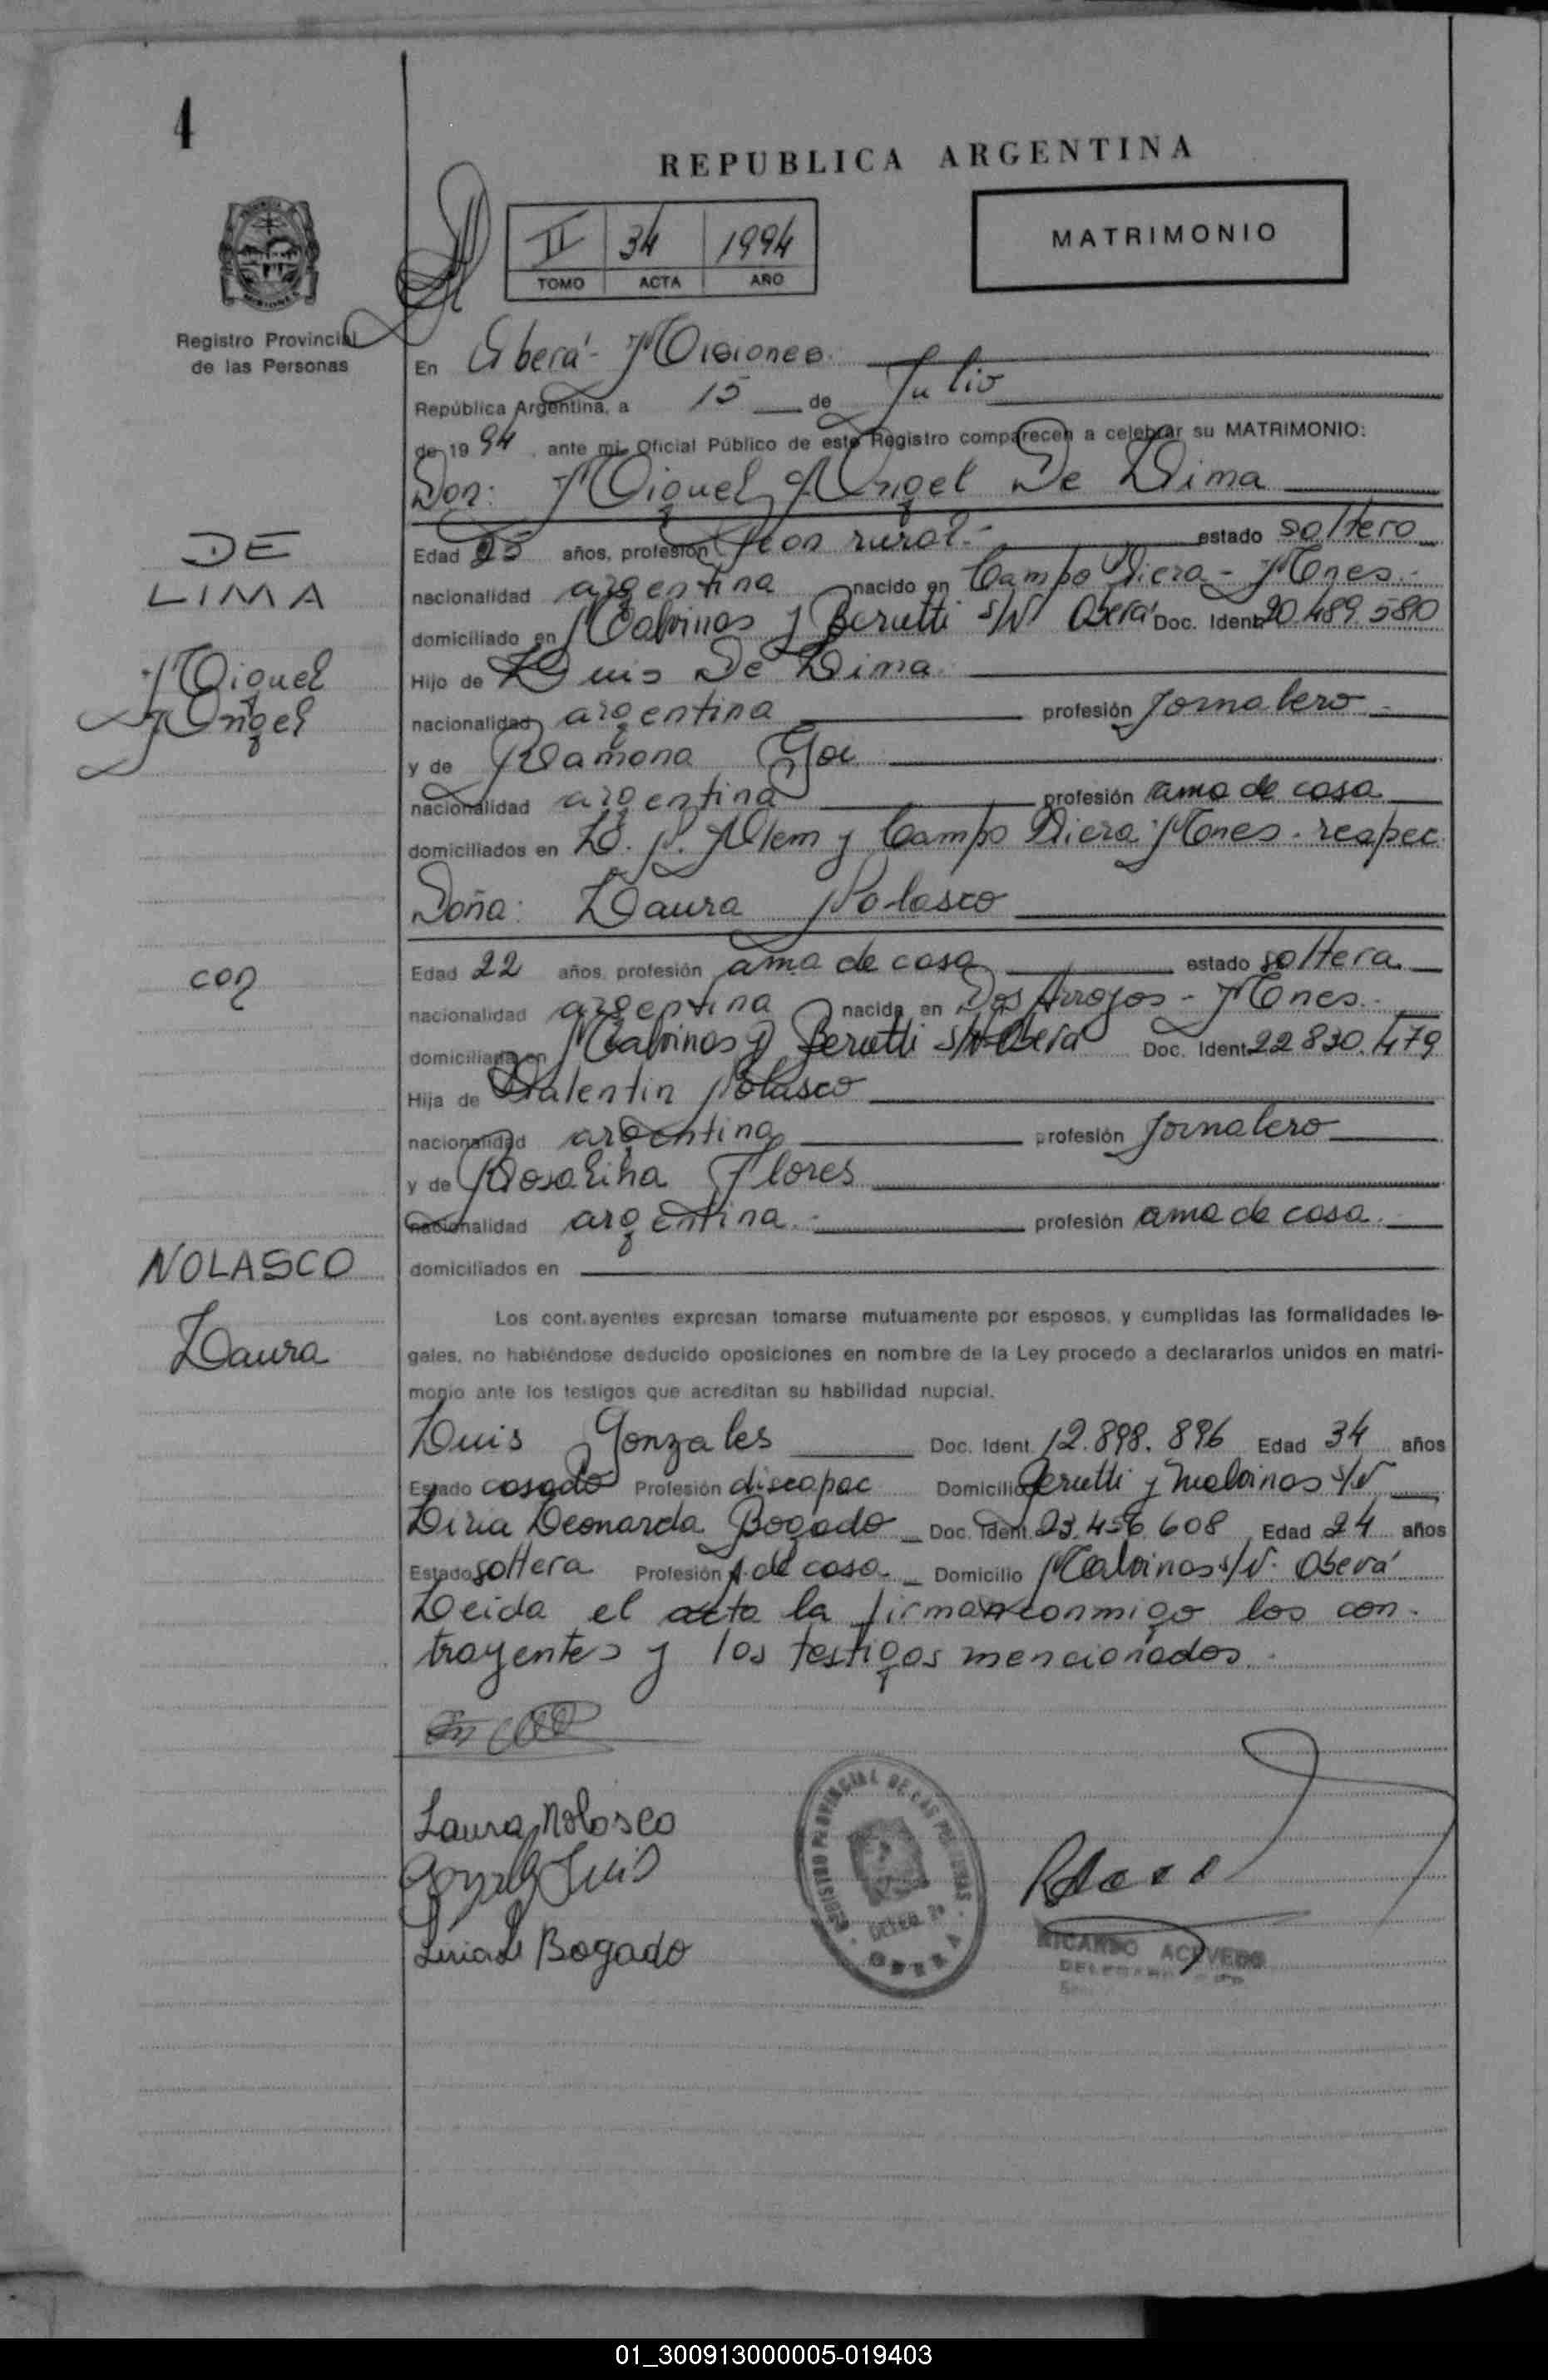 4
REPUBLICA ARGENTINA
II 34 1994
TOMO ACTA AÑO
MATRIMONIO
Registro Provincial
de las Personas
En Oberá - Misiones.
República Argentina, a 15 de Julio
de 1994, ante mi, Oficial Público de este Registro comparecen a celebrar su MATRIMONIO:
Don: Miguel Angel De Lima
DE
LIMA
Miguel
Angel
Edad 25 años, profesión Peon rural.- estado soltero
nacionalidad argentina nacido en Campo Viera - Mnes.-
domiciliado en Malvinas y Berutti s/N Oberá Doc. Ident. 20.489.580
Hijo de Luis De Lima.
nacionalidad argentina profesión Jornalero.-
y de Ramona
nacionalidad argentina profesión ama de casa
domiciliados en L. N. Alem y Campo Viera Mones. respec.
Doña: Laura Nolasco
con
Edad 22 años, profesión ama de casa estado soltera.
nacionalidad argentina nacida en Dos Arroyos - Mones.-
domiciliada en Malvinas y Berutti s/N Oberá Doc. Ident. 22.830.479
Hija de Valentin Nolasco
nacionalidad argentina profesión Jornalero
y de Rosalina Flores
nacionalidad argentina.- profesión ama de casa.
domiciliados en
NOLASCO
Laura
Los contrayentes expresan tomarse mutuamente por esposos, y cumplidas las formalidades le-
gales, no habiéndose deducido oposiciones en nombre de la Ley procedo a declararlos unidos en matri-
monio ante los testigos que acreditan su habilidad nupcial.
Luis Gonzales Doc. Ident. 12.898.896 Edad 34 años
Estado casado Profesión discapac Domicilio Berutti y Malvinas s/N
Liria Leonarda Bogado Doc. Ident. 23.456.608 Edad 24 años
Estado soltera Profesión A. de casa. Domicilio Malvinas s/N. Oberá
Leida el acta la firman conmigo los con-
trayentes y los testigos mencionados.
Laura Nolasco
Gonzales Luis
Liria L Bogado
REGISTRO PROVINCIAL DE LAS PERSONAS
OBERA
RICARDO ACEVEDO
01_300913000005-019403